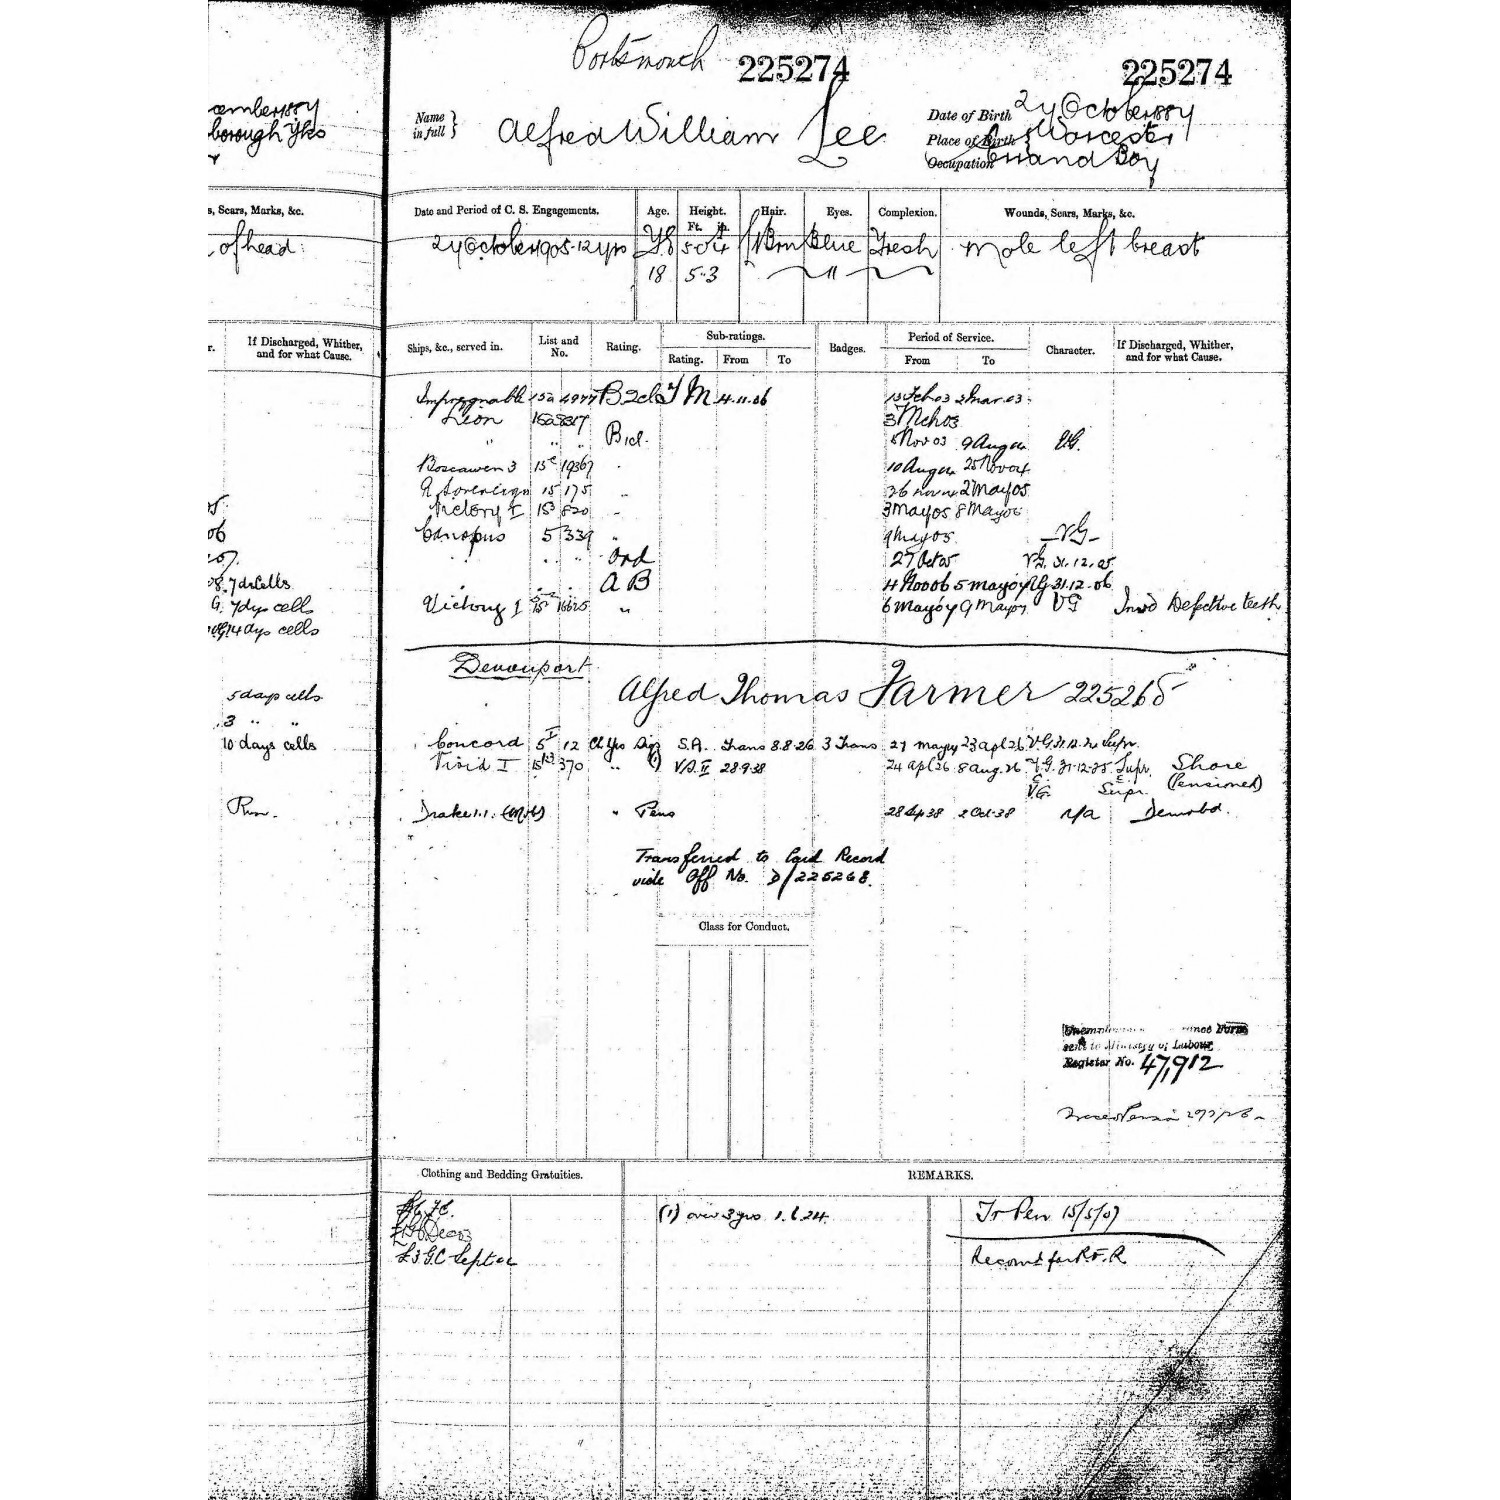 Portsmouth
225274
225274
cember 1887
borough Yks
Name in full } Alfred William Lee
Date of Birth 27 October 1887
Place of Birth Worcester
Occupation Errand Boy
s, Scars, Marks, &c.
of head
Date and Period of C. S. Engagements. Age. Height. Ft. in. Hair. Eyes. Complexion. Wounds, Scars, Marks, &c.
27 October 1905 - 12 yrs 5 Brn Blue Fresh Mole left breast
18 5-3 "
r. If Discharged, Whither, and for what Cause.
Ships, &c., served in. List and No. Rating. Sub-ratings. Rating. From To Badges. Period of Service. From To Character. If Discharged, Whither, and for what Cause.
Impregnable 15a 4977 B 2cl T M 4.11.06 2 Mar 03
Lion 3 Mch 03
" " " B 1cl. Nov 03 9 Aug 04 V.G.
Boscawen 3 15c 19367 10 Aug 04 25 Nov 04
R Sovereign 15 175 " 26 Nov 04 2 May 05
Victory I 15 820 " 3 May 05 8 May 05
Canopus 5 339 " 9 May 05 V G
Ord 27 Oct 05 V.G. 31.12.05
A B 4 Nov 06 5 May 07 V G 31.12.06
Victory I 15 16625 " 6 May 07 9 May 07 V G Invd Defective teeth
7 ds Cells
7 dys cells
14 dys cells
5 days cells
3 " "
10 days cells
Run.
Devonport
Alfred Thomas Farmer 225268
Concord 5 12 Ch Yeo Sigs S.A. Trans 8.8.26 3 Trans 23 Apl 26 V.G. Supr.
Vivid I 370 " (1) V.S. II 28.9.38 24 Apl 26 8 Aug. 26 V.G. 31-12-25 Supr. Shore (Pensioned)
V.G. Supr.
Drake 1.1. (Mob) " Pens 28 Sep 38 2 Oct 38 n/a Demobd.
Transferred to Card Record
vide Off No. D/225268.
Class for Conduct.
sent to Ministry of Labour
Register No. 47,912
Clothing and Bedding Gratuities.
REMARKS.
(1) over 3 yrs 1.6.24.
Tr Pen 15/5/07
£3 G.C
Recomd for R.F.R